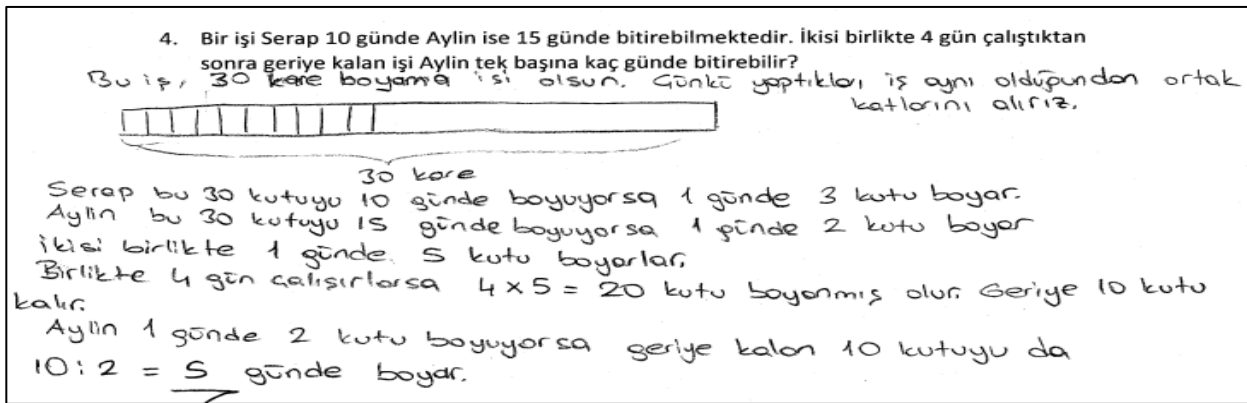 4. Bir işi Serap 10 günde Aylin ise 15 günde bitirebilmektedir. İkisi birlikte 4 gün çalıştıktan
sonra geriye kalan işi Aylin tek başına kaç günde bitirebilir?
Bu iş, 30 kare boyama işi olsun. Çünkü yaptıkları iş aynı olduğundan ortak
katlarını alırız.
30 kare
Serap bu 30 kutuyu 10 günde boyuyorsa 1 günde 3 kutu boyar.
Aylin bu 30 kutuyu 15 günde boyuyorsa 1 günde 2 kutu boyar
İkisi birlikte 1 günde 5 kutu boyarlar.
Birlikte 4 gün çalışırlarsa 4 x 5 = 20 kutu boyanmış olur. Geriye 10 kutu
kalır.
Aylin 1 günde 2 kutu boyuyorsa geriye kalan 10 kutuyu da
10 : 2 = 5 günde boyar.